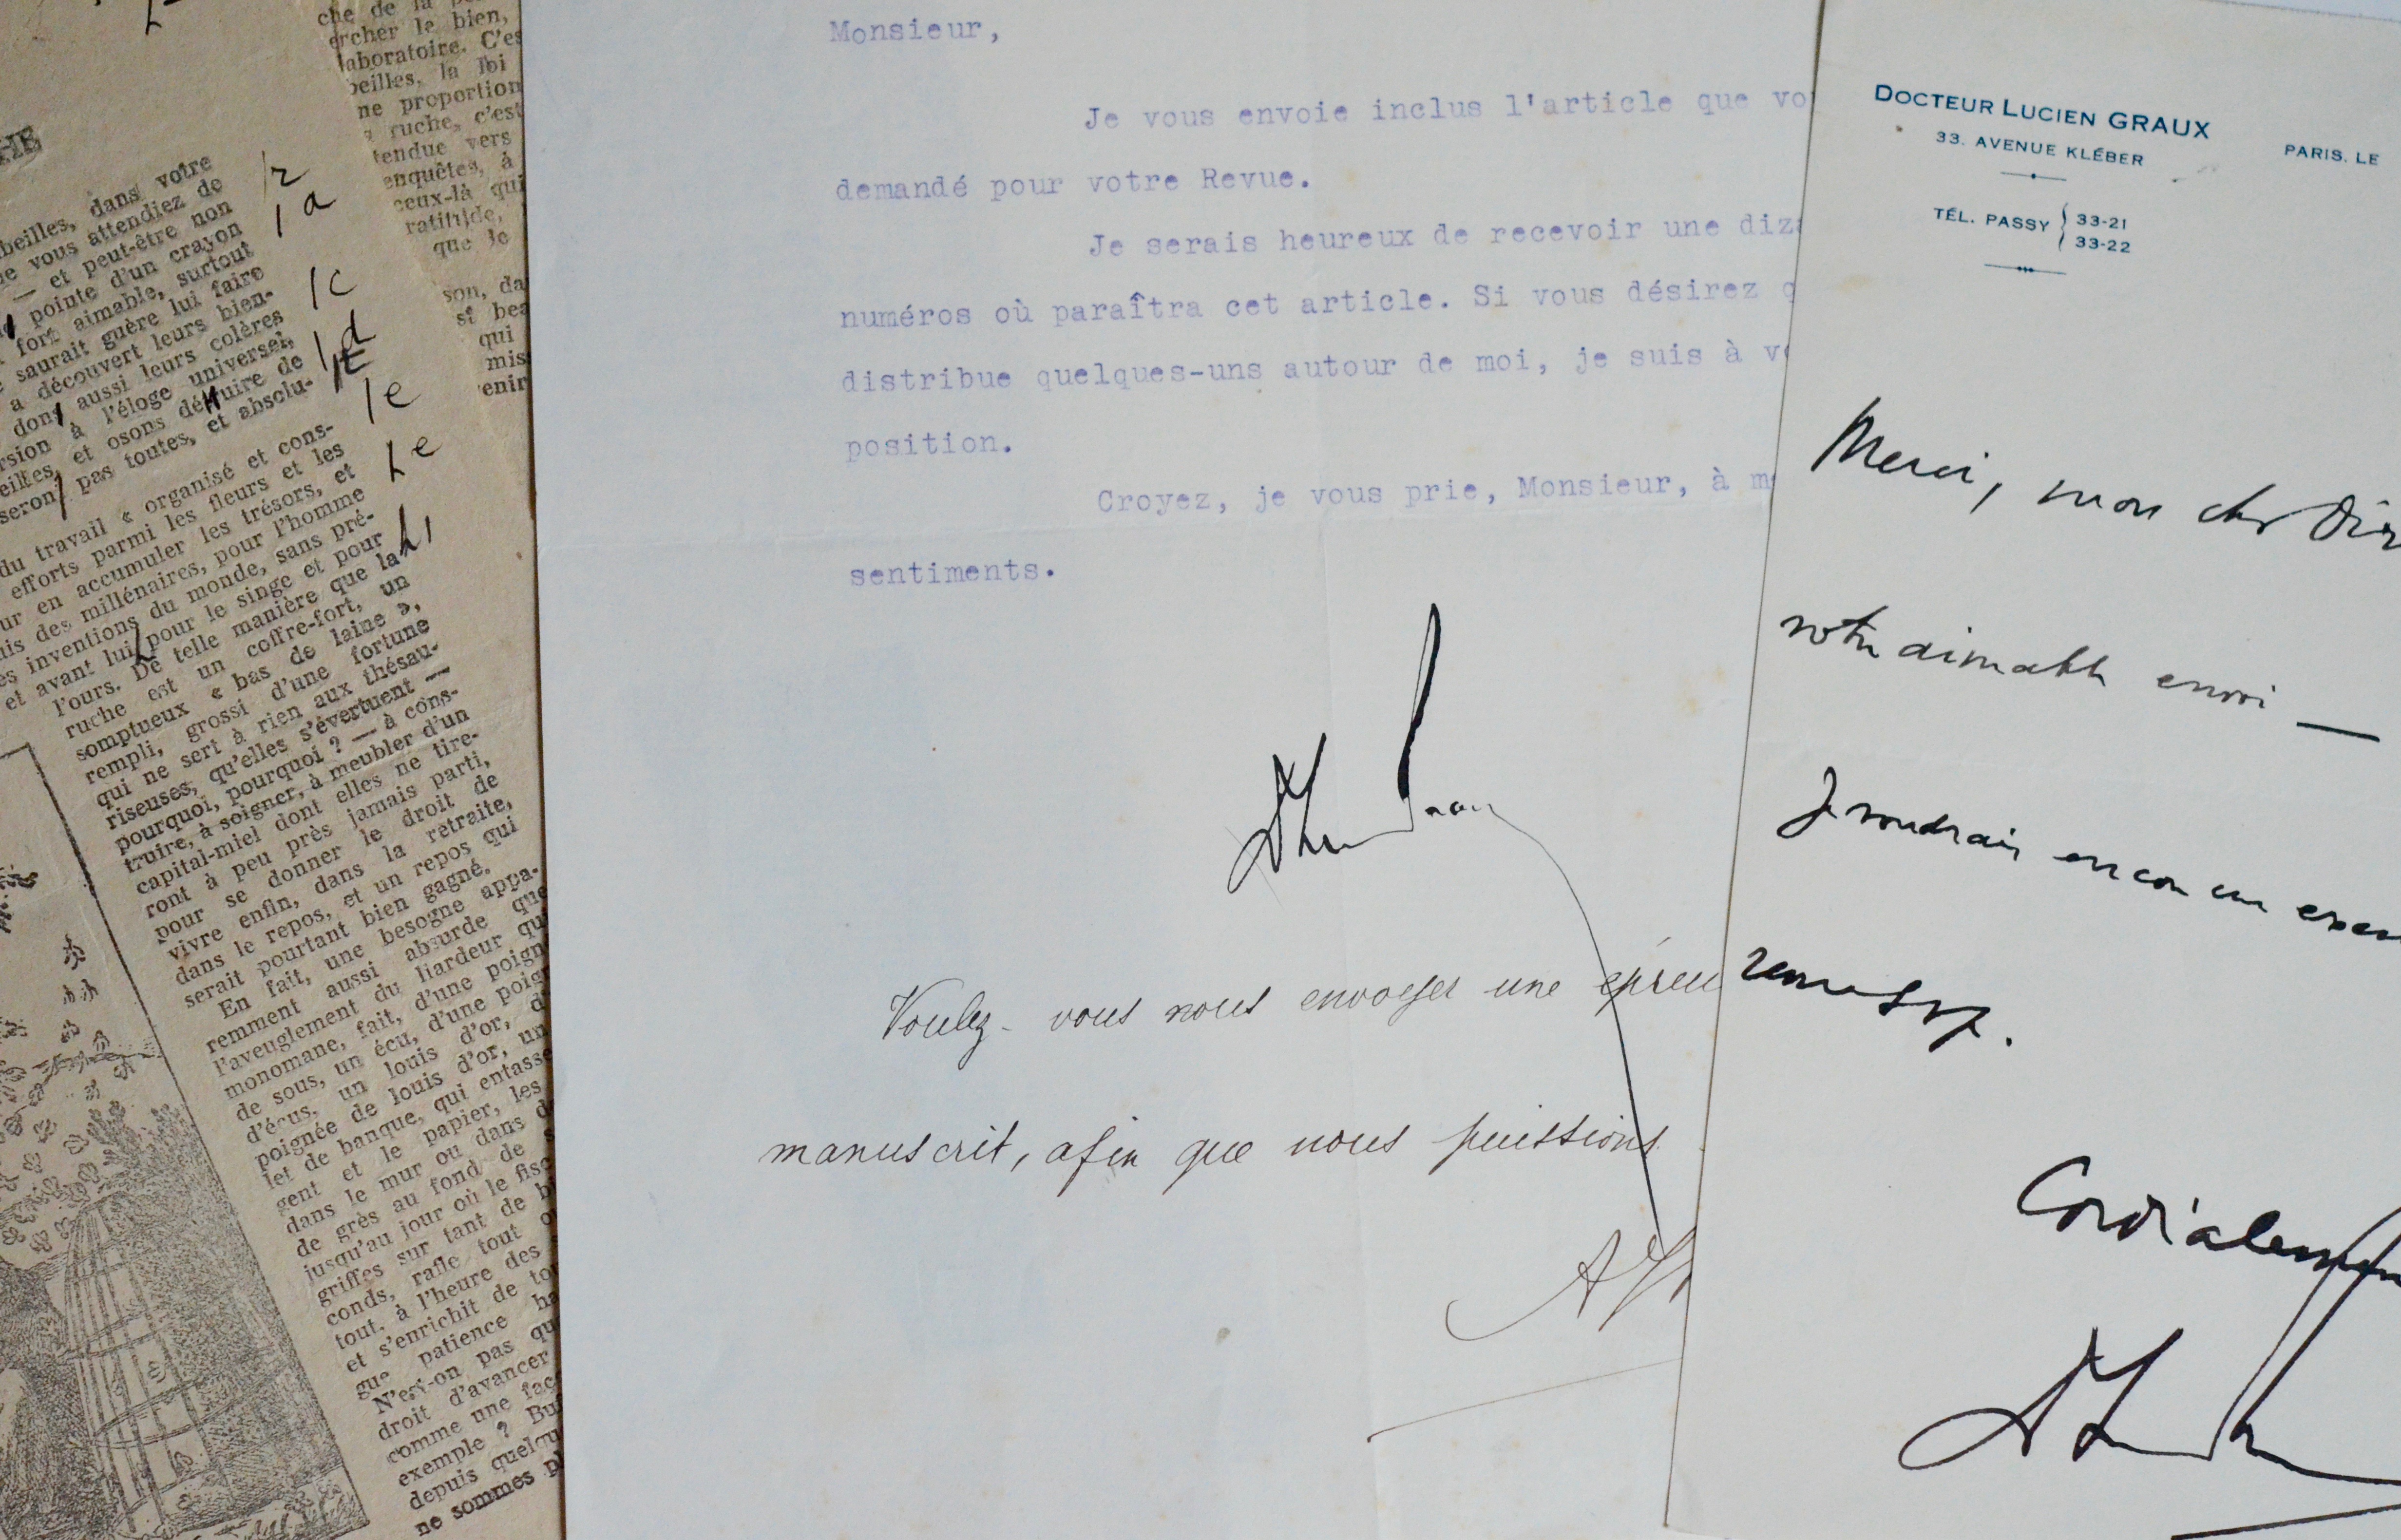 che de la
ercher le bien,
laboratoire. C'es
beilles, la loi
ne proportion
ruche, c'est
tendue vers
enquêtes, à
ceux-là qui
ratitude,
que le
son, da
si bea
qui
mis
enir
HE
beilles, dans votre
e vous attendiez de
— et peut-être non
pointe d'un crayon
fort aimable, surtout
saurait guère lui faire
a découvert leurs bien-
dont aussi leurs colères
rsion à l'éloge universel,
eilles, et osons détruire de
seront pas toutes, et absolu-
du travail « organisé et cons-
efforts parmi les fleurs et les
ur en accumuler les trésors, et
uis des millénaires, pour l'homme
es inventions du monde, sans pré-
et avant lui pour le singe et pour
l'ours. De telle manière que la
ruche est un coffre-fort, un
somptueux « bas de laine »,
rempli, grossi d'une fortune
qui ne sert à rien aux thésau-
riseuses, qu'elles s'évertuent —
pourquoi, pourquoi ? — à cons-
truire, à soigner, à meubler d'un
capital-miel dont elles ne tire-
ront à peu près jamais parti,
pour se donner le droit de
vivre enfin, dans la retraite,
dans le repos, et un repos qui
serait pourtant bien gagné.
En fait, une besogne appa-
remment aussi absurde que
l'aveuglement du liardeur qu
monomane, fait, d'une poign
de sous, un écu, d'une poign
d'écus, un louis d'or, d'
poignée de louis d'or, un
let de banque, qui entasse
gent et le papier, les
dans le mur ou dans
de grès au fond de
jusqu'au jour où le fisc
griffes sur tant de bi
conds, rafle tout
tout, à l'heure des
et s'enrichit de to
gue patience ha
N'est-on pas qu
droit d'avancer
comme une fac
exemple ? Bu
depuis quelqu
ne sommes p
r
a
c
d
t
e
e
Monsieur,
Je vous envoie inclus l'article que vo
demandé pour votre Revue.
Je serais heureux de recevoir une diza
numéros où paraîtra cet article. Si vous désirez q
distribue quelques-uns autour de moi, je suis à vo
position.
Croyez, je vous prie, Monsieur, à me
sentiments.
Voulez-vous nous envoyer une épreu
manuscrit, afin que nous puissions
DOCTEUR LUCIEN GRAUX
33. AVENUE KLÉBER
PARIS. LE
TÉL. PASSY { 33-21
33-22
Merci, mon cher Dir
votre aimable envoi —
Je voudrais encore un exem
revue svp.
Cordialement